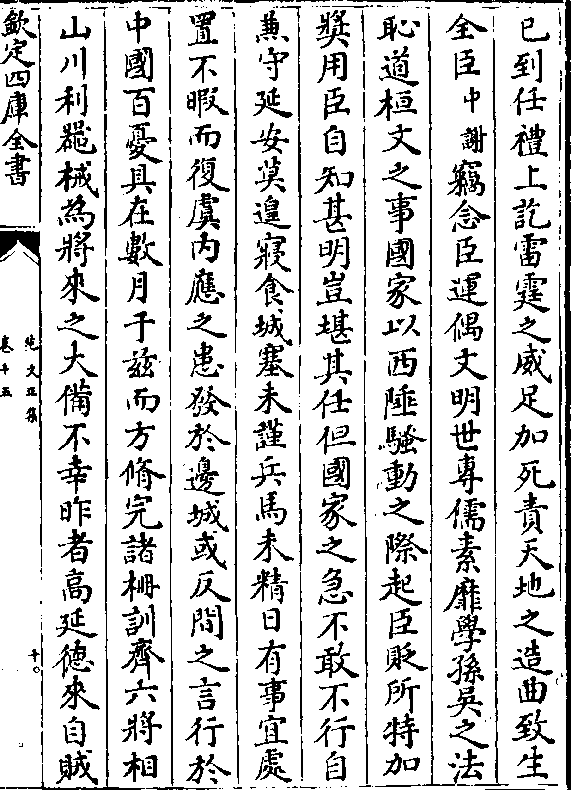 已到任禮上訖雷霆之威足加死責天地之造曲致生
全臣中謝竊念臣運偶文明世專儒素靡學孫吳之法
恥道桓文之事國家以西陲騷動之際起臣貶所特加
奬用臣自知甚明豈堪其任但國家之急不敢不行自
兼守延安莫遑寢食城塞未謹兵馬未精日有事宜處
置不暇而復虞内應之患發於邊城或反間之言行於
中國百憂具在數月于兹而方脩完諸柵訓齊六將相
山川利噐械為將來之大備不幸昨者高延德來自賊
欽定四庫全書
范文正集
卷十五
十